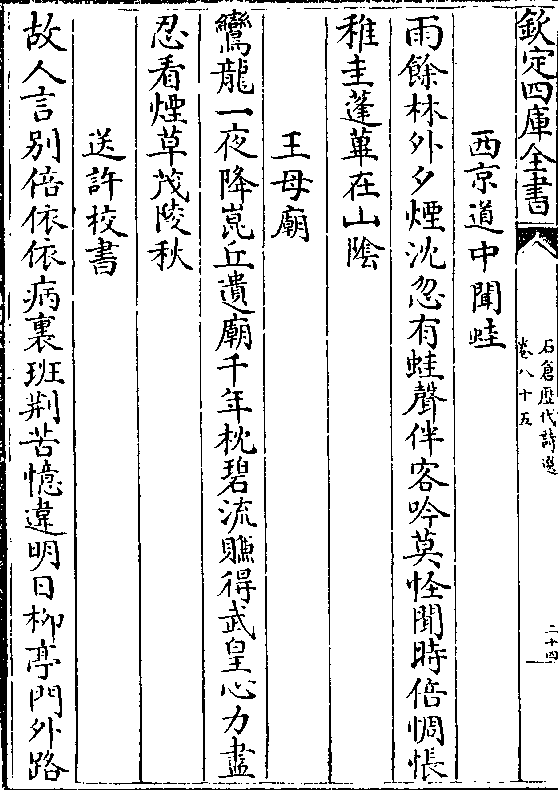 欽定四庫全書
石倉歷代詩選
卷八十五
二十四
西京道中聞蛙
雨餘林外夕煙沈忽有蛙聲伴客吟莫怪聞時倍惆悵
稚圭蓬蓽在山陰
王母廟
鸞龍一夜降崑丘遺廟千年枕碧流賺得武皇心力盡
忍看煙草茂陵秋
送許校書
故人言别倍依依病裏班荆苦憶違明日柳亭門外路